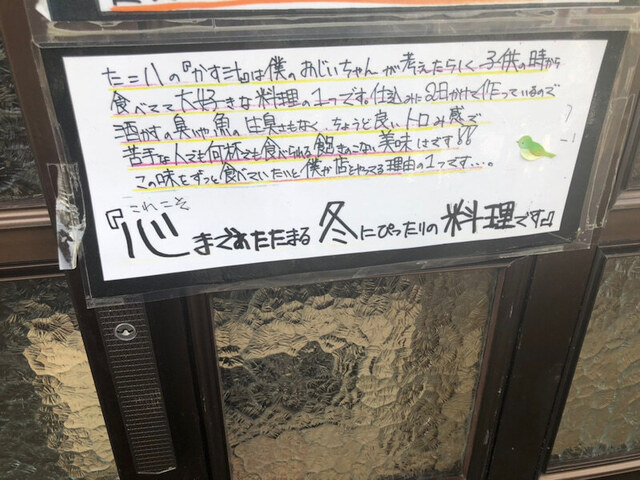 たこ八の『かす汁』は僕のおじいちゃんが考えたらしく、子供の時から
食べてて大好きな料理の1つです。仕込みに2日かけて作っているので
酒かすの臭いや魚の生臭さもなく、ちょうど良いトロみ感で
苦手な人でも何杯でも食べられる飽きのこない美味しさです!!
この味をずっと食べていたいと僕が店をやってる理由の1つです…。
これこそ
『心まであたたまる冬にぴったりの料理です。』